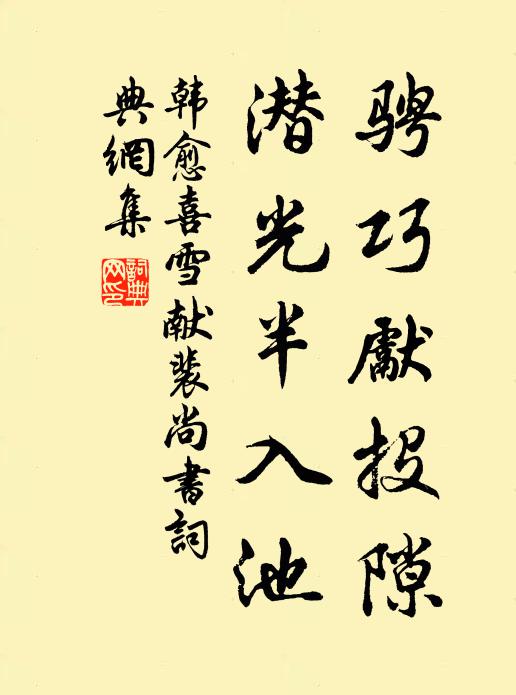 骋巧投隙
潜光半入池
韩愈喜雪献裴尚書詞
典網集
詞典
网印